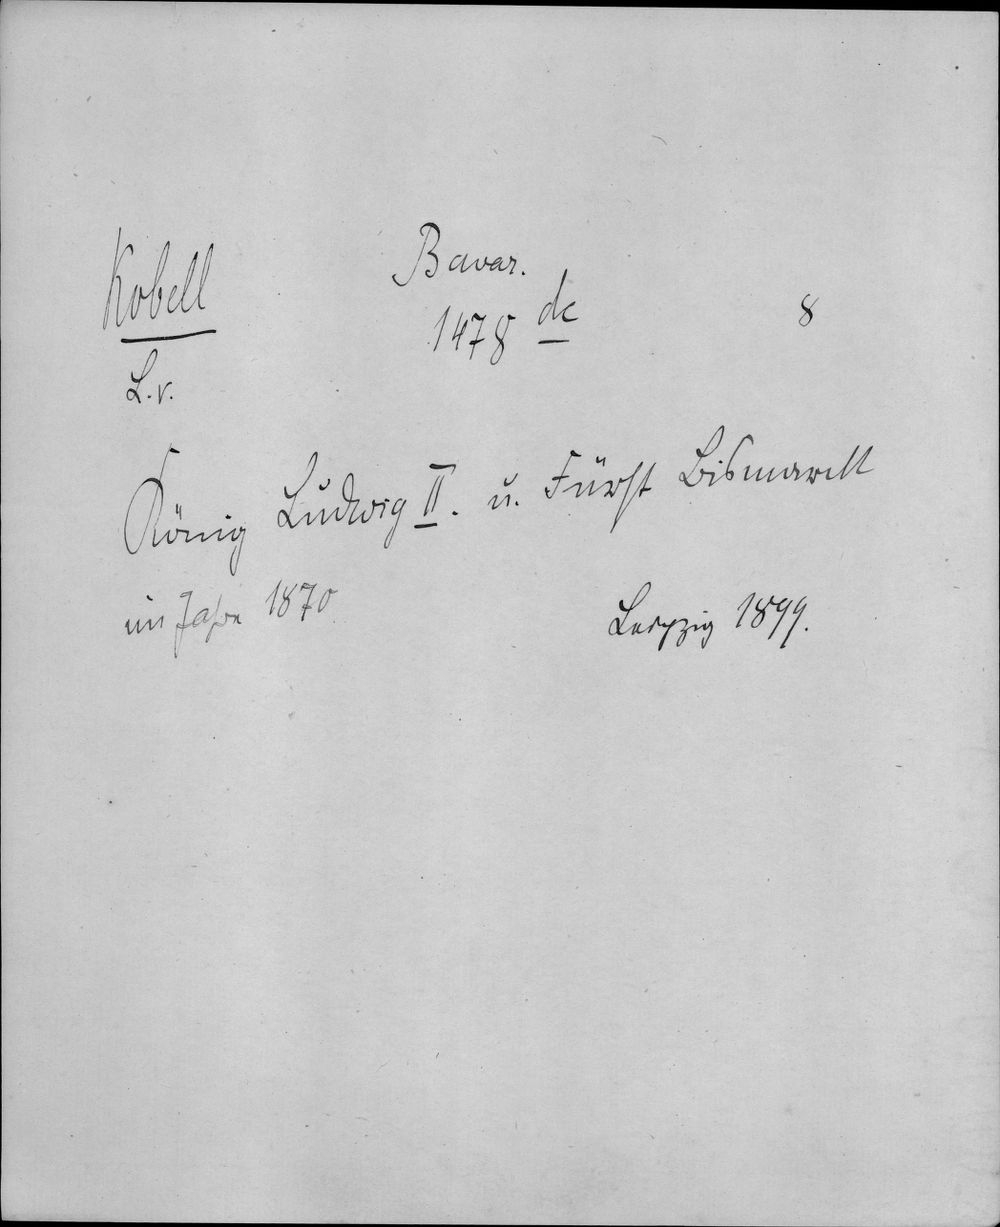 Kobell
L. v.
Bavar.
1478 dc
8
König Ludwig II. u. Fürst Bismarck
im Jahre 1870
Leipzig 1899.